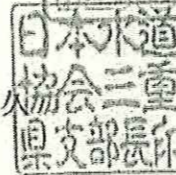 日本水道
協会三重
県支部長印